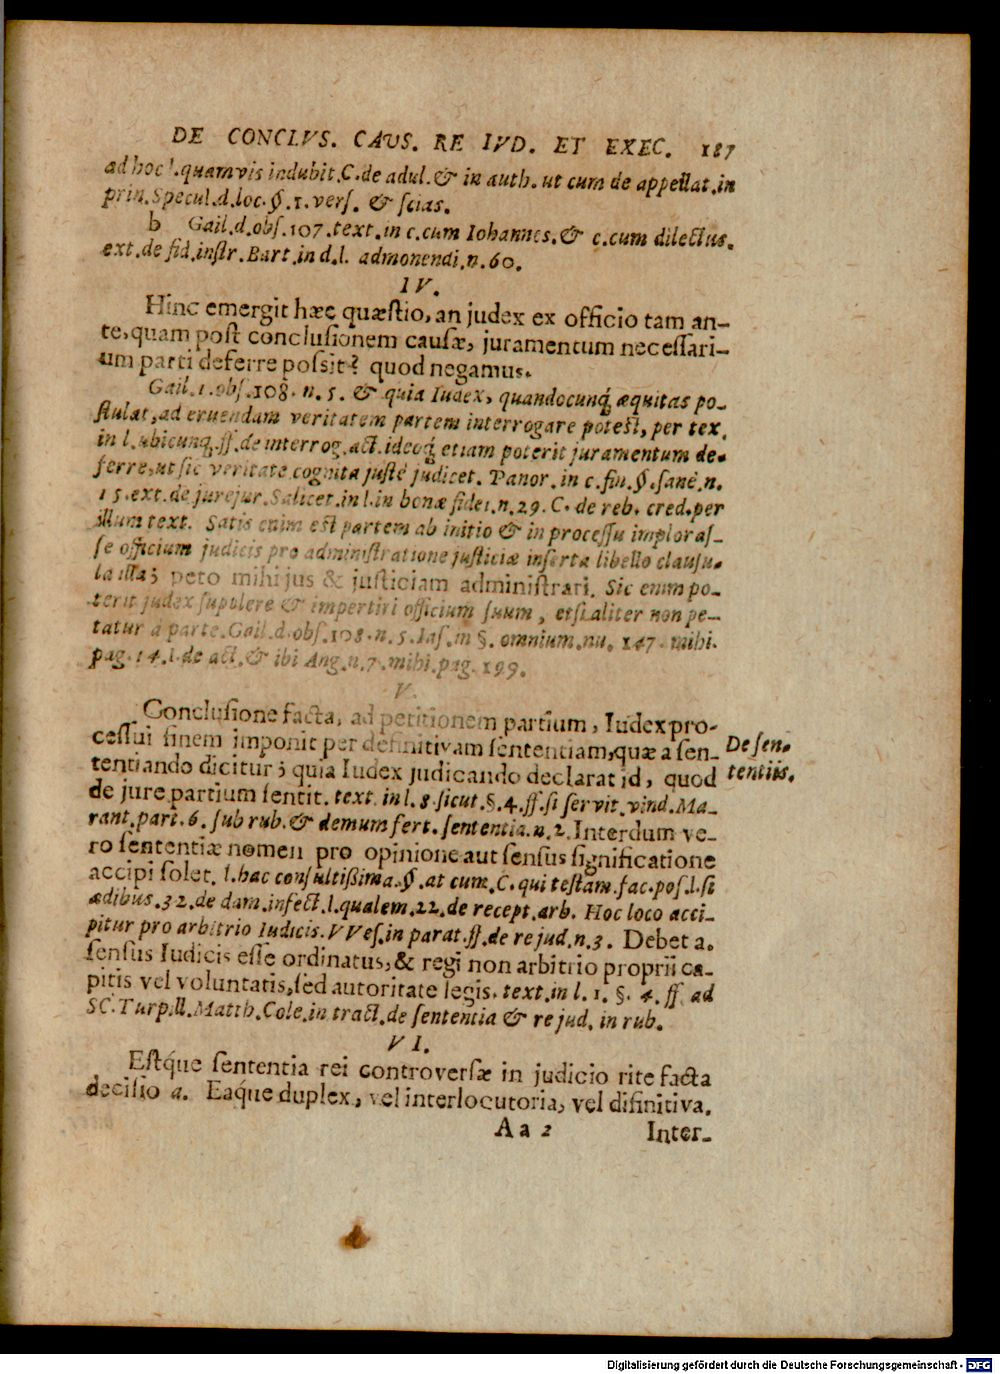 DE CONCLVS. CAVS. RE IVD. ET EXEC. 187
ad hoc l.quamvis indubit.C.de adul.& in auth. ut cum de appellat.in
prin.Specul.d.loc.§.1.vers. & scias.
b Gail.d.obs.107.text.in c.cum Iohannes.& c.cum dilectus.
ext.de fid.instr.Bart.in d.l. admonendi.n.60.
IV.
Hinc emergit hæc quæstio, an judex ex officio tam an-
te, quam post conclusionem causæ, juramentum necessari-
um parti deferre possit? quod negamus.
Gail.1.obs.108. n. 5. & quia Iudex, quandocunq; æquitas po-
stulat, ad eruendam veritatem partem interrogare potest, per tex.
in l.ubicunq.ff.de interrog.act.ideoq; etiam poterit juramentum de-
ferre, ut sic veritate cognita justè judicet. Panor.in c.fin.§.sanè.n.
15.ext.de jurejur.Salicet.in l.in bonæ fidei.n.29.C.de reb. cred.per
illum text. Satis enim est partem ab initio & in processu imploras-
se officium judicis pro administratione justiciæ inserta libello clausu-
la illa; peto mihi jus & justiciam administrari. Sic enim po-
terit judex supplere & impertiri officium suum, etsi aliter non pe-
tatur à parte.Gail.d.obs.108.n.5.Ias.in §. omnium.nu. 147. mihi.
pag.141.de act.& ibi Ang.n.7.mihi.pag.199.
V.
Conclusione facta, ad petitionem partium, Iudex pro-
cessui finem imponit per definitivam sententiam, quæ a sen-
tentiando dicitur; quia Iudex judicando declarat id, quod
de jure partium sentit. text. in l. 8. sicut.§.4.ff.si servit.vind.Ma-
rant.part.6.sub rub.& demum fert.sententia.n.2. Interdum ve-
ro sententiæ nomen pro opinione aut sensus significatione
accipi solet. l.hac consultißima.§.at cum.C.qui testam.fac.pos.l.si
ædibus.32.de dam.infect.l.qualem.22.de recept.arb. Hoc loco acci-
pitur pro arbitrio Iudicis.VVes.in parat.ff.de re jud.n.3. Debet a.
sensus Iudicis esse ordinatus, & regi non arbitrio proprii ca-
pitis vel voluntatis, sed autoritate legis. text.in l. 1. §. 4. ff. ad
SC.Turpill.Matth.Cole.in tract.de sententia & re jud. in rub.
De sen-
tentiis.
VI.
Estq́ue sententia rei controversæ in judicio rite facta
decisio a. Eaq́ue duplex, vel interlocutoria, vel difinitiva.
Aa 2 Inter-
Digitalisierung gefördert durch die Deutsche Forschungsgemeinschaft - DFG